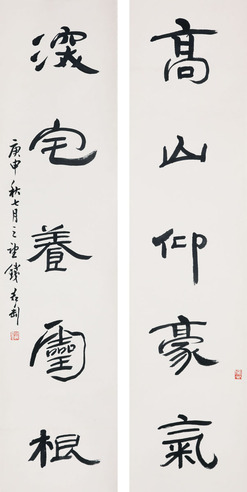 高山仰豪氣
深宅養靈根
庚申秋七月之望錢君匋